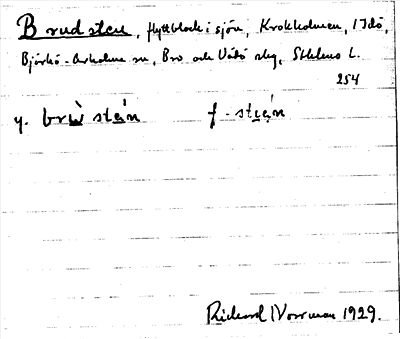 Brudsten, flyttblock i sjön, Krokholmen, 17dö,
Björkö-Arholma sn, Bro och Vädö skg, Sthlms L.
254
y. brù stä́n f. stęä́n
Rickard Norrman 1929.